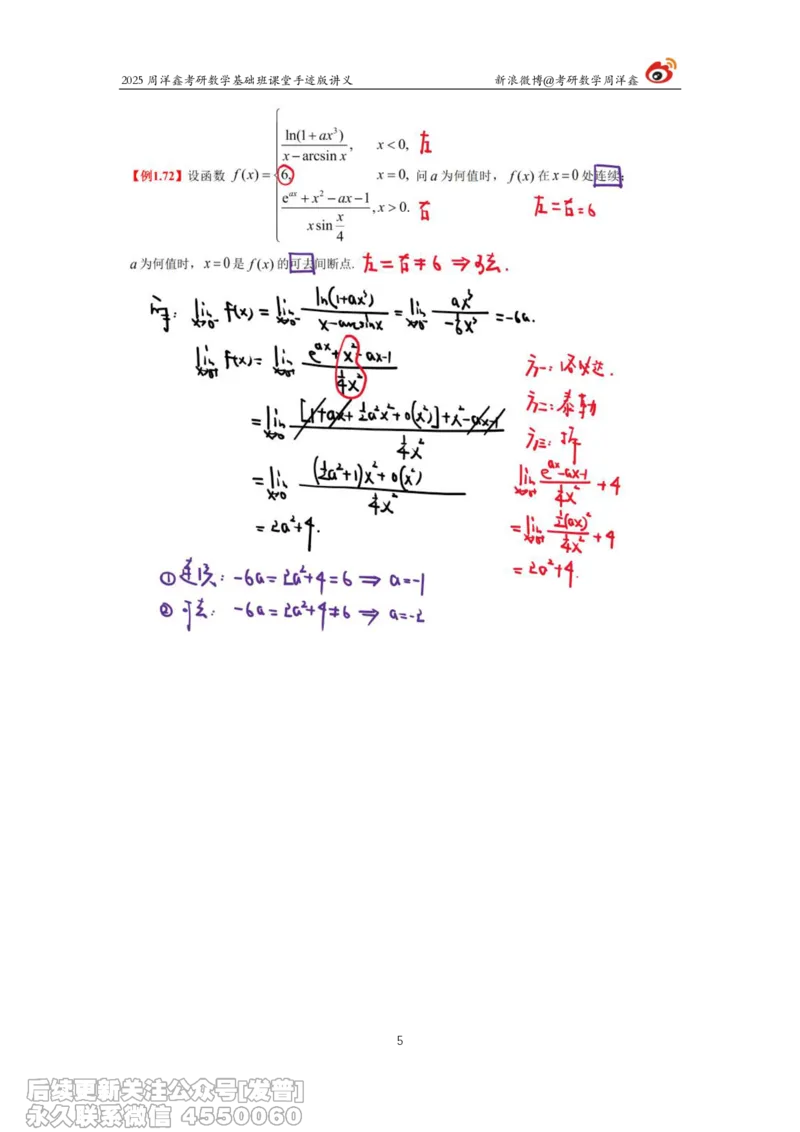 2025 周洋鑫考研数学基础班课堂手迹版讲义 新浪微博@考研数学周洋鑫
ln(1+ax³)/(x−arcsin x), x<0, 左
【例1.72】设函数 f(x)={6, x=0, 问a为何值时，f(x)在x=0处连续；
(e^{ax}+x²−ax−1)/(x sin(x/4)), x>0. 右 左=右=6
a为何值时，x=0是f(x)的可去间断点. 左=右≠6 ⇒ 可去.
解: lim_{x→0⁻} f(x) = lim_{x→0⁻} ln(1+ax³)/(x−arcsinx) = lim_{x→0⁻} ax³/(−1/6 x³) = −6a.
lim_{x→0⁺} f(x) = lim_{x→0⁺} (e^{ax}+x²−ax−1)/(1/4 x²)
= lim_{x→0} ([1+ax+1/2 a²x²+o(x²)]+x²−ax−1)/(1/4 x²)
= lim_{x→0} ((1/2 a²+1)x²+o(x²))/(1/4 x²)
= 2a²+4.
方一: 洛必达.
方二: 泰勒
方三: 拆
lim_{x→0⁺} (e^{ax}−ax−1)/(1/4 x²) +4
= lim_{x→0⁺} (1/2 (ax)²)/(1/4 x²) +4
= 2a²+4.
① 连续: −6a=2a²+4=6 ⇒ a=−1
② 可去: −6a=2a²+4≠6 ⇒ a=−2
5
后续更新关注公众号[发普]
永久联系微信 4550060